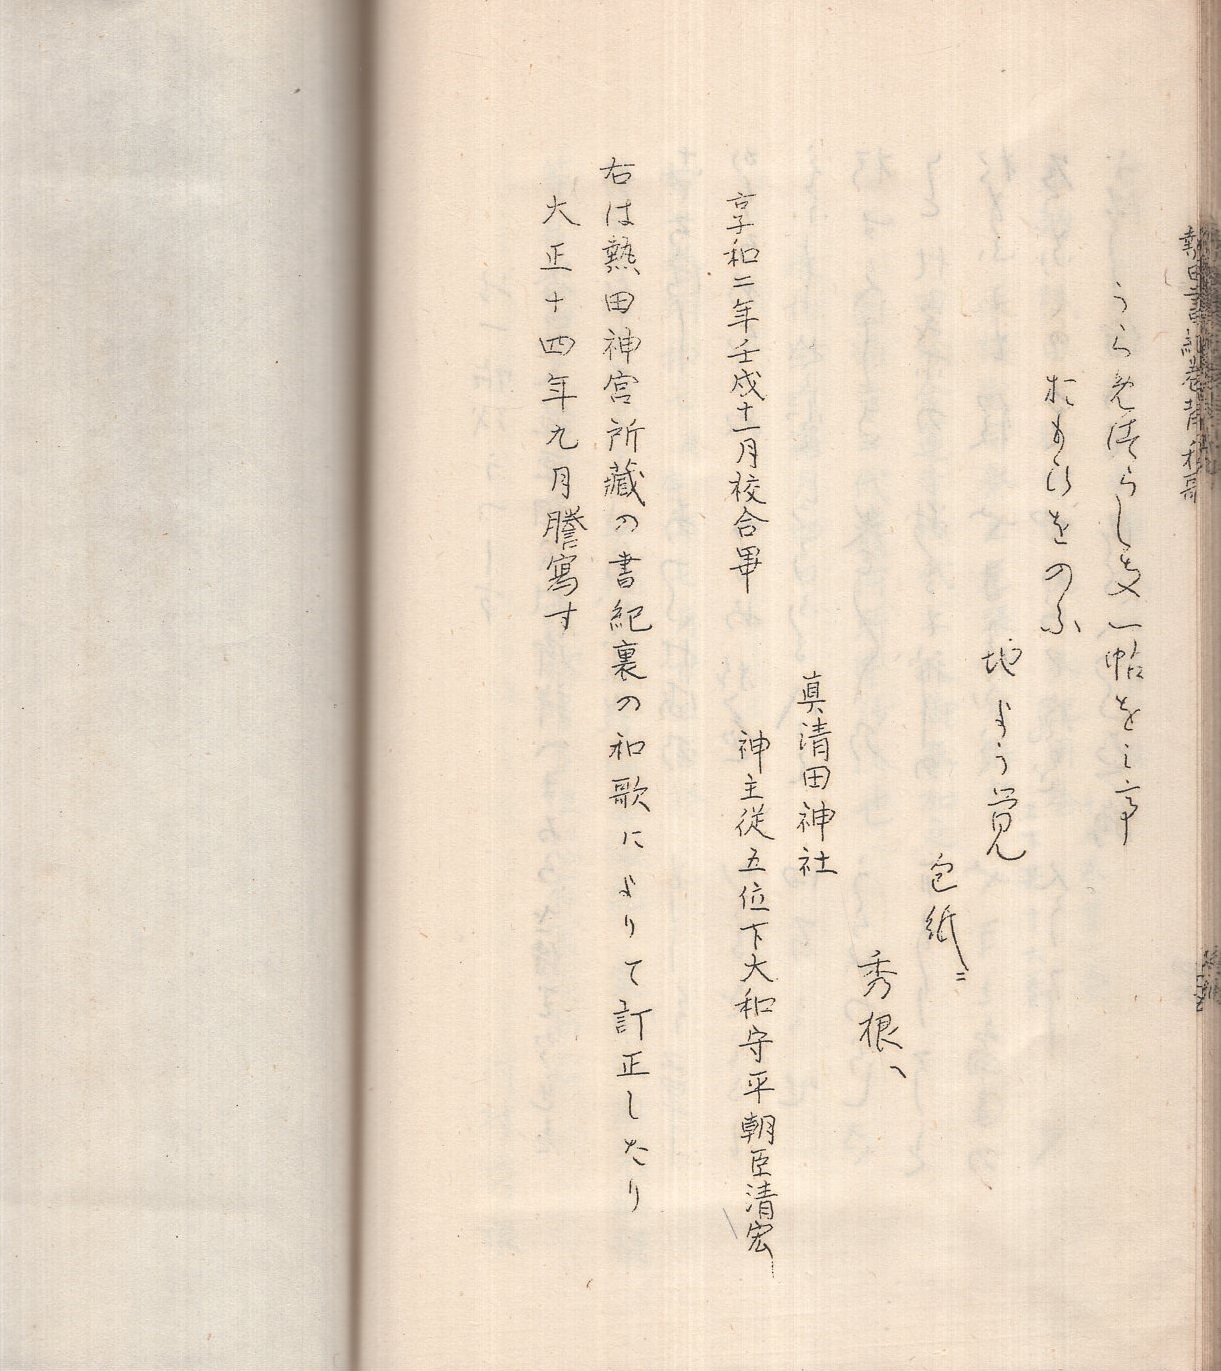 熱田書紀巻背和哥
うらめつらし文一帖をし亭
おもひをのふ
地よう覚
包紙ニ
秀根
真清田神社
神主従五位下大和守平朝臣清宏
享和二年壬戌十一月校合畢
右は熱田神宮所藏の書紀裏の和歌によりて訂正したり
大正十四年九月謄寫す